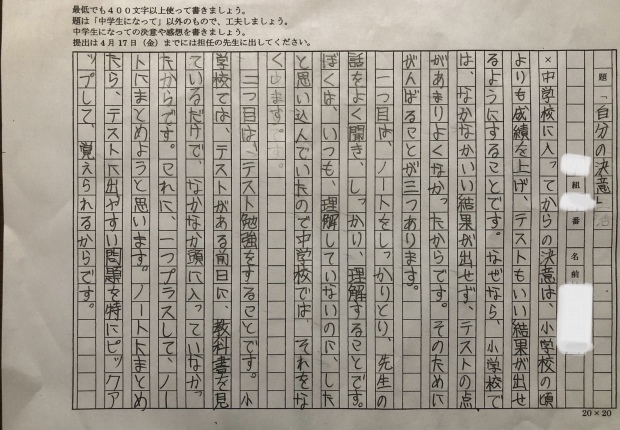 最低でも400文字以上使って書きましょう。
題は「中学生になって」以外のもので、工夫しましょう。
中学生になっての決意や感想を書きましょう。
提出は4月17日(金)までには担任の先生に出してください。
題「自分の決意」
組 番 名前
×中学校に入ってからの決意は、小学校の頃
よりも成績を上げ、テストもいい結果が出せ
るようにすることです。なぜなら、小学校で
は、なかなかいい結果が出せず、テストの点
があまりよくなかったからです。そのために
がんばることが三つあります。
一つ目は、ノートをしっかりとり、先生の
話をよく聞き、しっかり、理解することです。
ぼくは、いつも、理解していないのに、した
と思い込んでいたので中学校では、それをな
くします。
二つ目は、テスト勉強をすることです。小
学校では、テストがある前日に、教科書を見
ているだけで、なかなか頭に入っていなかっ
たからです。これに、一つプラスして、ノー
トにまとめようと思います。ノートにまとめ
たら、テストに出やすい問題を特にピックア
ップして、覚えられるからです。
20×20